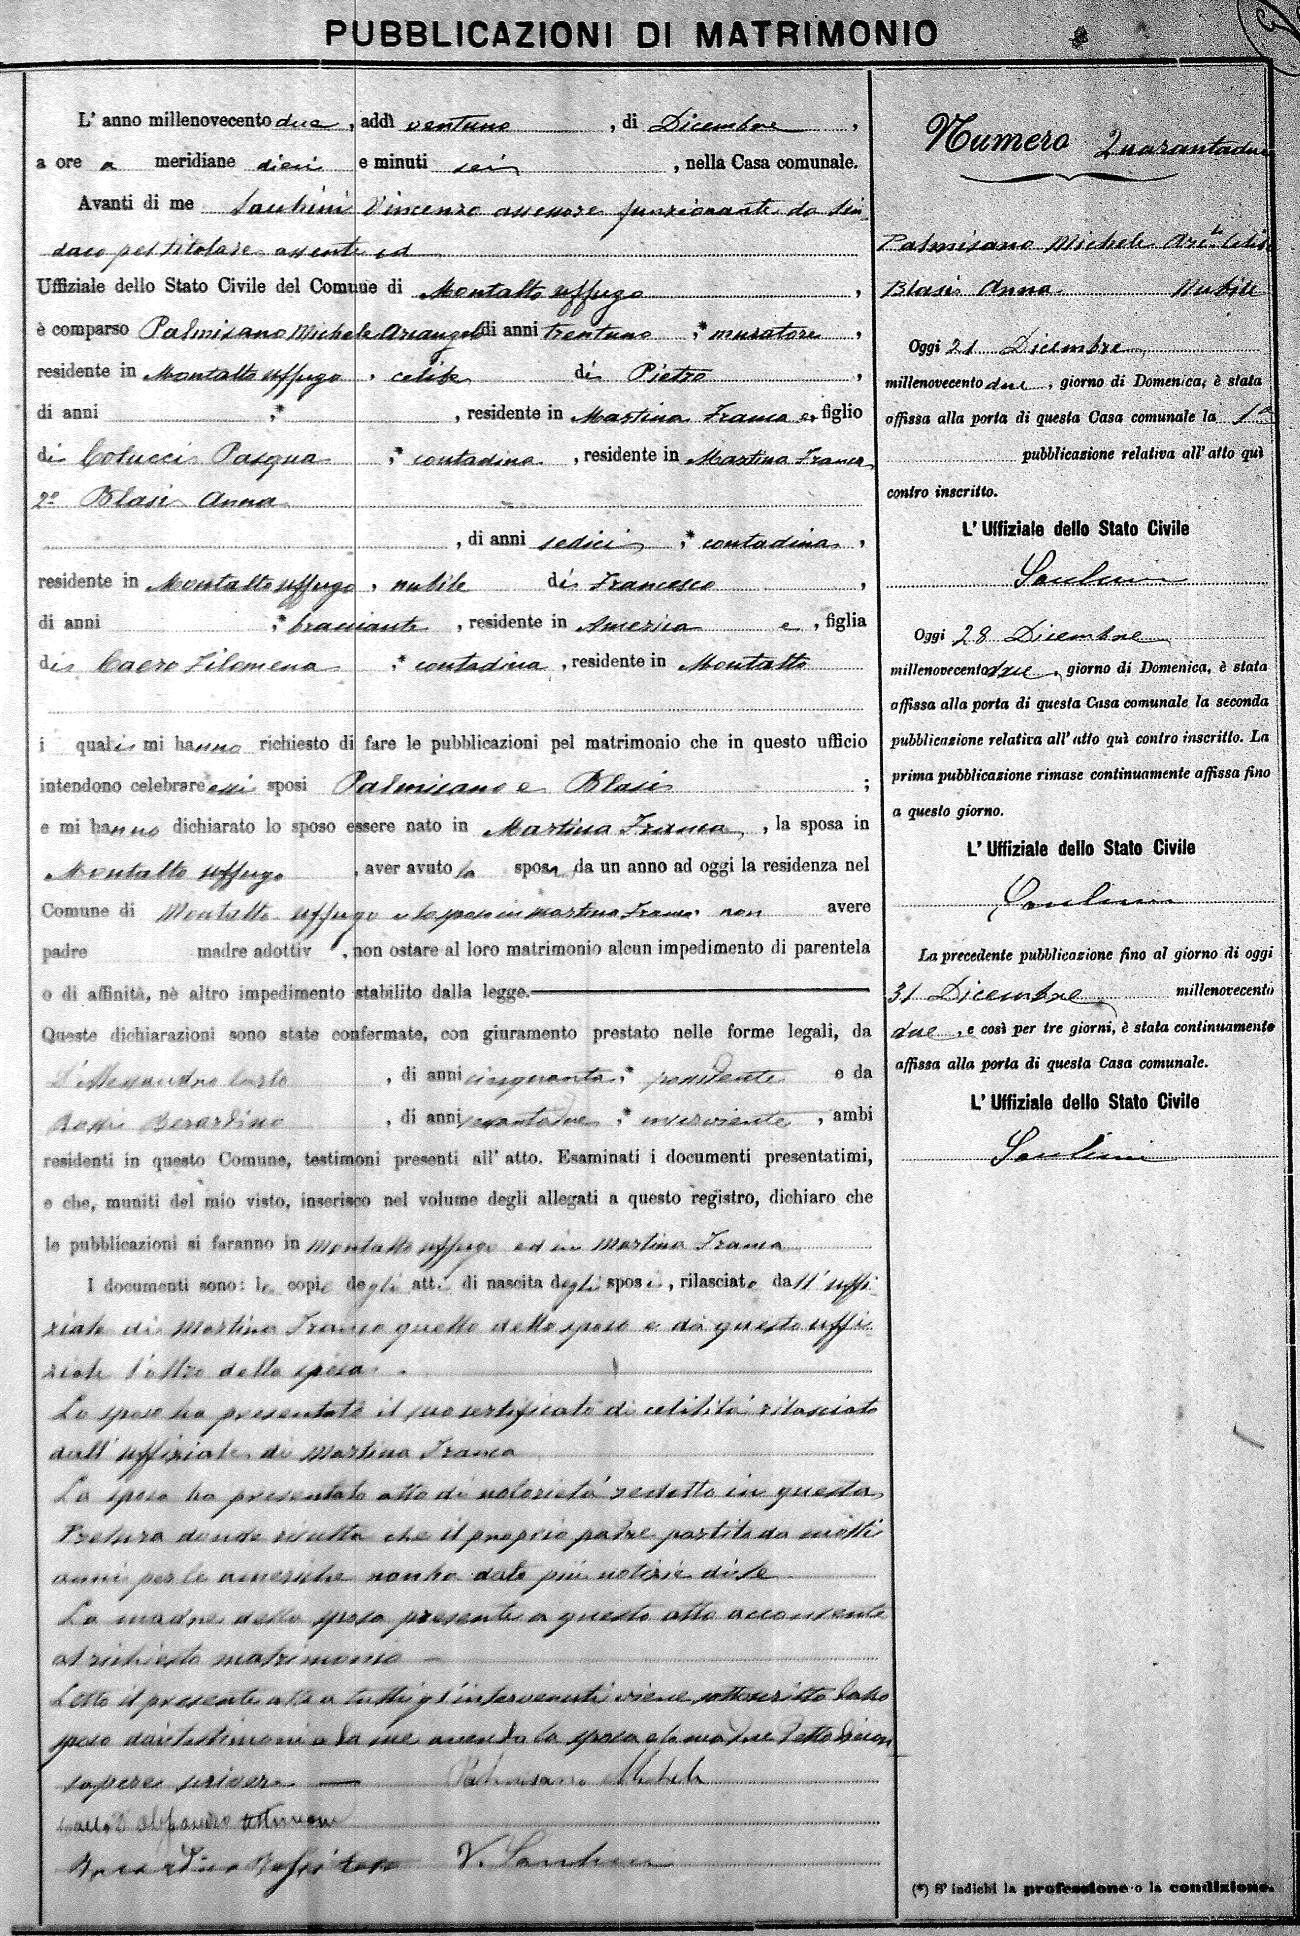 PUBBLICAZIONI DI MATRIMONIO
L' anno millenovecento due, addì ventuno, di Dicembre,
a ore a meridiane dieci e minuti sei, nella Casa comunale.
Avanti di me Vincenzo assessore funzionante da Sin
daco pel titolare assente ed
Uffiziale dello Stato Civile del Comune di Montalto Uffugo,
è comparso Palmisano Michele Arcangelo di anni trentuno, * muratore,
residente in Montalto Uffugo, celibe di Pietro,
di anni , * , residente in Martina Franca e, figlio
di Colucci Pasqua, * contadina, residente in Martina Franca
2º Blasi Anna
, di anni sedici, * contadina,
residente in Montalto Uffugo, nubile di Francesco,
di anni , * bracciante, residente in America e, figlia
di Caero Filomena, * contadina, residente in Montalto
i quali mi hanno richiesto di fare le pubblicazioni pel matrimonio che in questo ufficio
intendono celebrare essi sposi Palmisano e Blasi ;
e mi hanno dichiarato lo sposo essere nato in Martina Franca, la sposa in
Montalto Uffugo, aver avuto la sposa da un anno ad oggi la residenza nel
Comune di Montalto Uffugo e lo sposo in Martina Franca non avere
padre madre adottiv , non ostare al loro matrimonio alcun impedimento di parentela
o di affinità, nè altro impedimento stabilito dalla legge.
Queste dichiarazioni sono state confermate, con giuramento prestato nelle forme legali, da
D'Alessandro Carlo, di anni cinquanta, * possidente e da
Rossi Berardino, di anni , * inserviente, ambi
residenti in questo Comune, testimoni presenti all' atto. Esaminati i documenti presentatimi,
e che, muniti del mio visto, inserisco nel volume degli allegati a questo registro, dichiaro che
le pubblicazioni si faranno in Montalto Uffugo ed in Martina Franca
I documenti sono: le copie degli atti di nascita degli sposi, rilasciate dall' uffi
ziale di Martina Franca quello dello sposo e da questo uffi
ziale l'altro della sposa.
Lo sposo ha presentato il suo certificato di celibità rilasciato
dall' uffiziale di Martina Franca
La sposa ha presentato atto di notorietà redatto in questa
Pretura donde risulta che il proprio padre partito da molti
anni per le americhe non ha dato più notizie di se
La madre della sposa presente a questo atto acconsente
al richiesto matrimonio
Letto il presente atto a tutti gl'intervenuti viene sottoscritto dallo
sposo dai testimoni e da me avendo la sposa e la madre detto di non
sapere scrivere Palmisano Michele
Carlo D'Alessandro testimone
Berardino Rossi teste V.
Numero Quarantadue
Palmisano Michele Arc.lo Celibe
Blasi Anna Nubile
Oggi 21 Dicembre
millenovecento due, giorno di Domenica, è stata
affissa alla porta di questa Casa comunale la 1ª
pubblicazione relativa all' atto quì
contro inscritto.
L' Uffiziale dello Stato Civile
Oggi 28 Dicembre
millenovecento due, giorno di Domenica, è stata
affissa alla porta di questa Casa comunale la seconda
pubblicazione relativa all' atto quì contro inscritto. La
prima pubblicazione rimase continuamente affissa fino
a questo giorno.
L' Uffiziale dello Stato Civile
La precedente pubblicazione fino al giorno di oggi
31 Dicembre millenovecento
due, e così per tre giorni, è stata continuamente
affissa alla porta di questa Casa comunale.
L' Uffiziale dello Stato Civile
(*) S' indichi la professione o la condizione.